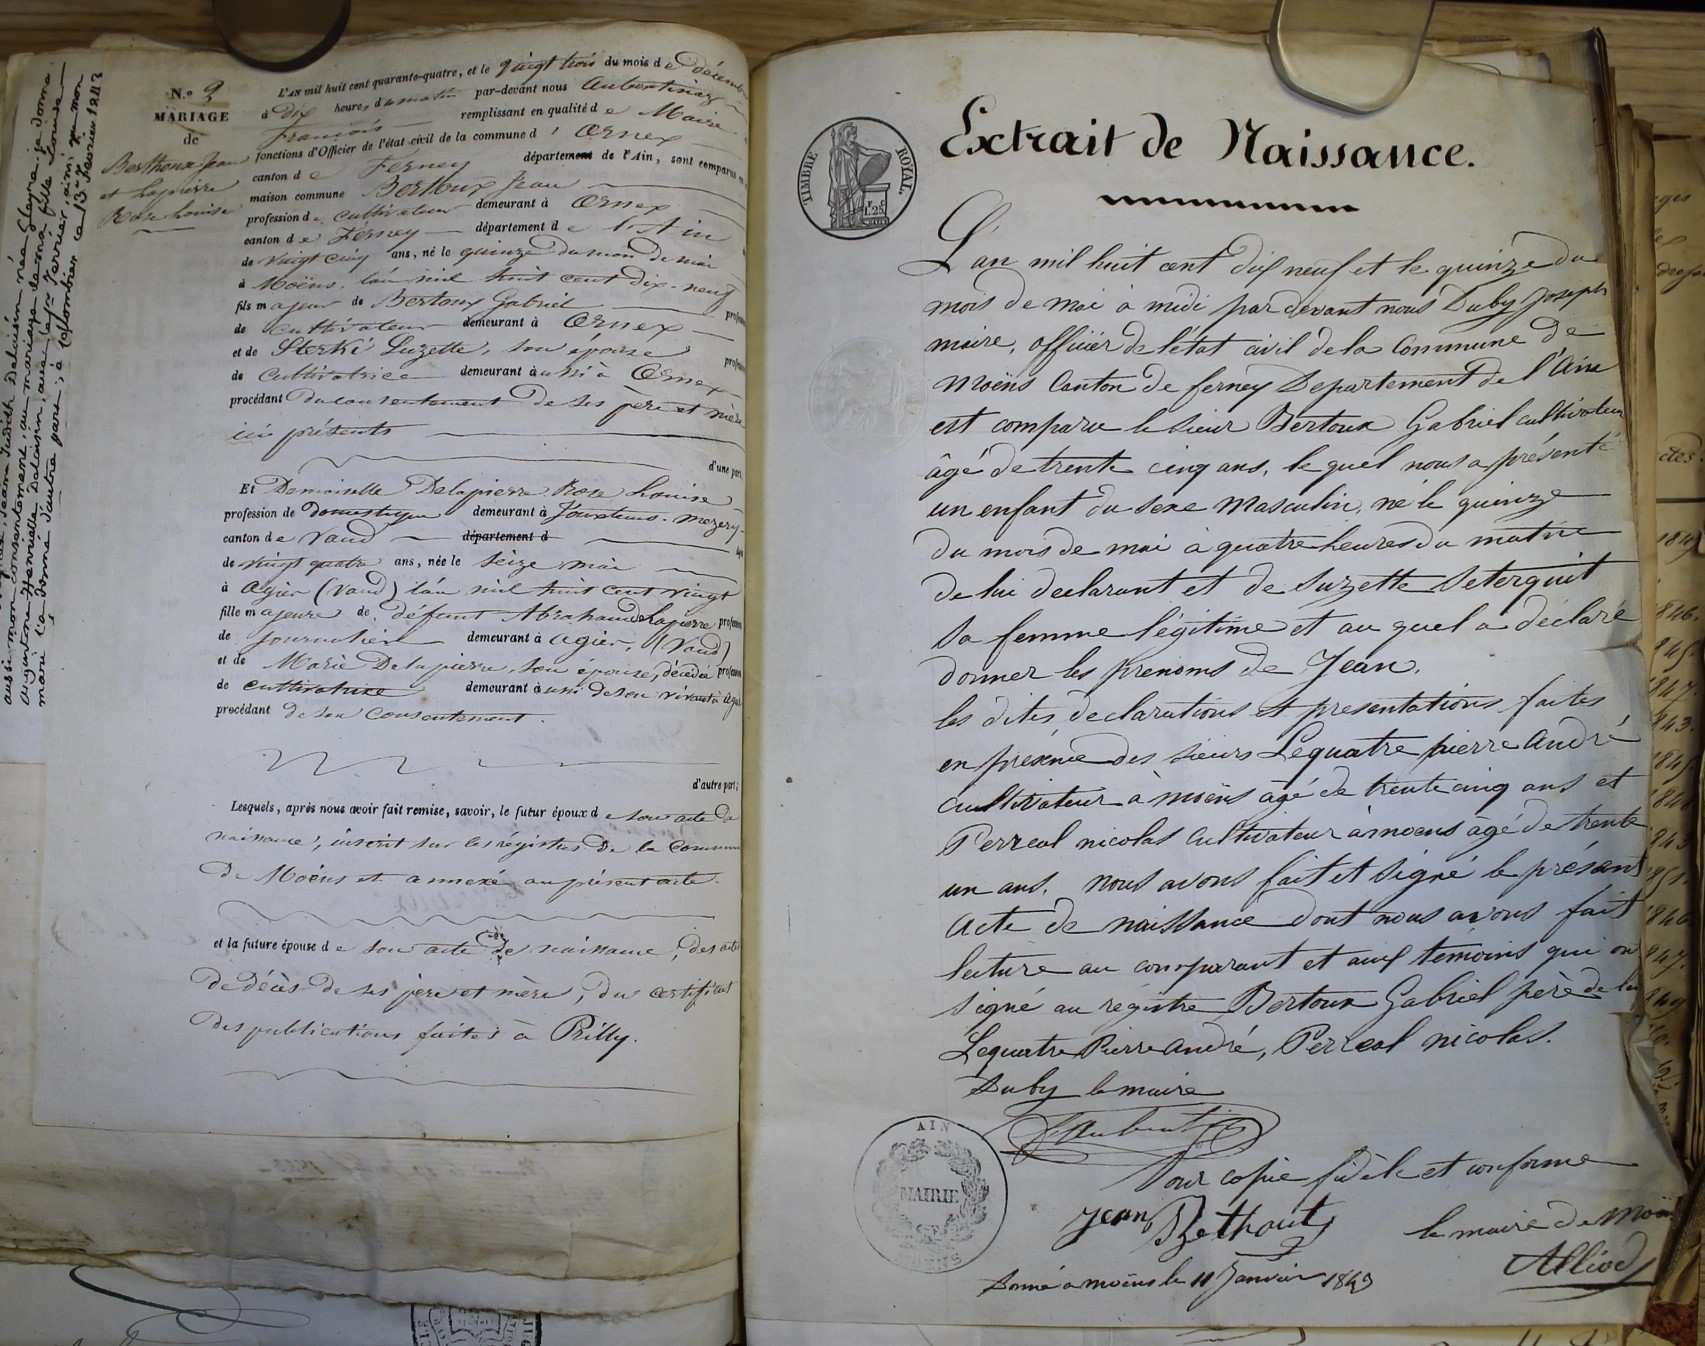 aussi mon consentement, au mariage de ma fille Louise
Augustine Henriette Daloisin, avec
mari l'a donné d'autre part, à Colombier ce 13 février 1843
N.º 9
MARIAGE
de
Berthoux Jean
et Lapierre
Rose Louise
L'AN mil huit cent quarante-quatre, et le vingt trois du mois de décemb
à dix heures du matin par-devant nous Aubertin
françois remplissant en qualité de Maire
fonctions d'Officier de l'état civil de la commune d' Ornex
canton de Ferney département de l'Ain, sont comparus en
maison commune Berthoux Jean
profession de cultivateur demeurant à Ornex
canton de Ferney département de l'Ain
de vingt cinq ans, né le quinze du mois de mai
à Moëns, l'an mil huit cent dix-neuf
fils majeur de Bertoux Gabriel profession
de cultivateur demeurant à Ornex
et de Sterki Suzette, son épouse profession
de cultivatrice demeurant aussi à Ornex
procédant du consentement de ses père et mère
ici présents
d'une part
Et Demoiselle Delapierre Rose Louise
profession de domestique demeurant à Jouxtens-Mezery
canton de Vaud département d
de vingt quatre ans, née le seize mai
à Agiez (Vaud) l'an mil huit cent vingt
fille majeure de défunt Abraham Delapierre profession
de journalier demeurant à Agiez, (Vaud)
et de Marie Delapierre, son épouse, décédée profession
de cultivatrice demeurant aussi de son vivant à Agiez
procédant de son consentement.
d'autre part;
Lesquels, après nous avoir fait remise, savoir, le futur époux de son acte de
naissance, inscrit sur les régistres de la Commune
de Moëns et annexé au présent acte.
et la future épouse de son acte de naissance, des actes
de décès de ses père et mère, du certificat
des publications faites à Prilly.
TIMBRE ROYAL.
1 F. 25 C
Extrait de Naissance.
L'an mil huit cent dix neuf et le quinze du
mois de mai à midi par devant nous Duby Joseph
maire, officier de l'état civil de la Commune de
Moëns Canton de ferney Departement de l'Ain
est comparu le sieur Bertoux Gabriel cultivateur
âgé de trente cinq ans, le quel nous a présenté
un enfant du sexe Masculin, né le quinze
du mois de mai à quatre heures du matin
de lui declarant et de Suzette Seterquit
sa femme légitime et au quel a déclaré
donner les prenoms de Jean.
les dites declarations et presentations faites
en présence des sieurs Lequatre pierre André
cultivateur à moëns âgé de trente cinq ans et
Perreal nicolas cultivateur à moens âgé de trente
un ans. nous avons fait et signé le présent
acte de naissance dont nous avons fait
lecture au comparant et aux témoins qui ont
signé au régistre Bertoux Gabriel père de l'en
Lequatre Pierre André, Perreal nicolas.
Duby le maire
Pour copie fidèle et conforme
Jean Bethout le maire de Moëns
Alliod
Donné a moëns le 11 Janvier 1843
AIN
MAIRIE
DE
MOENS